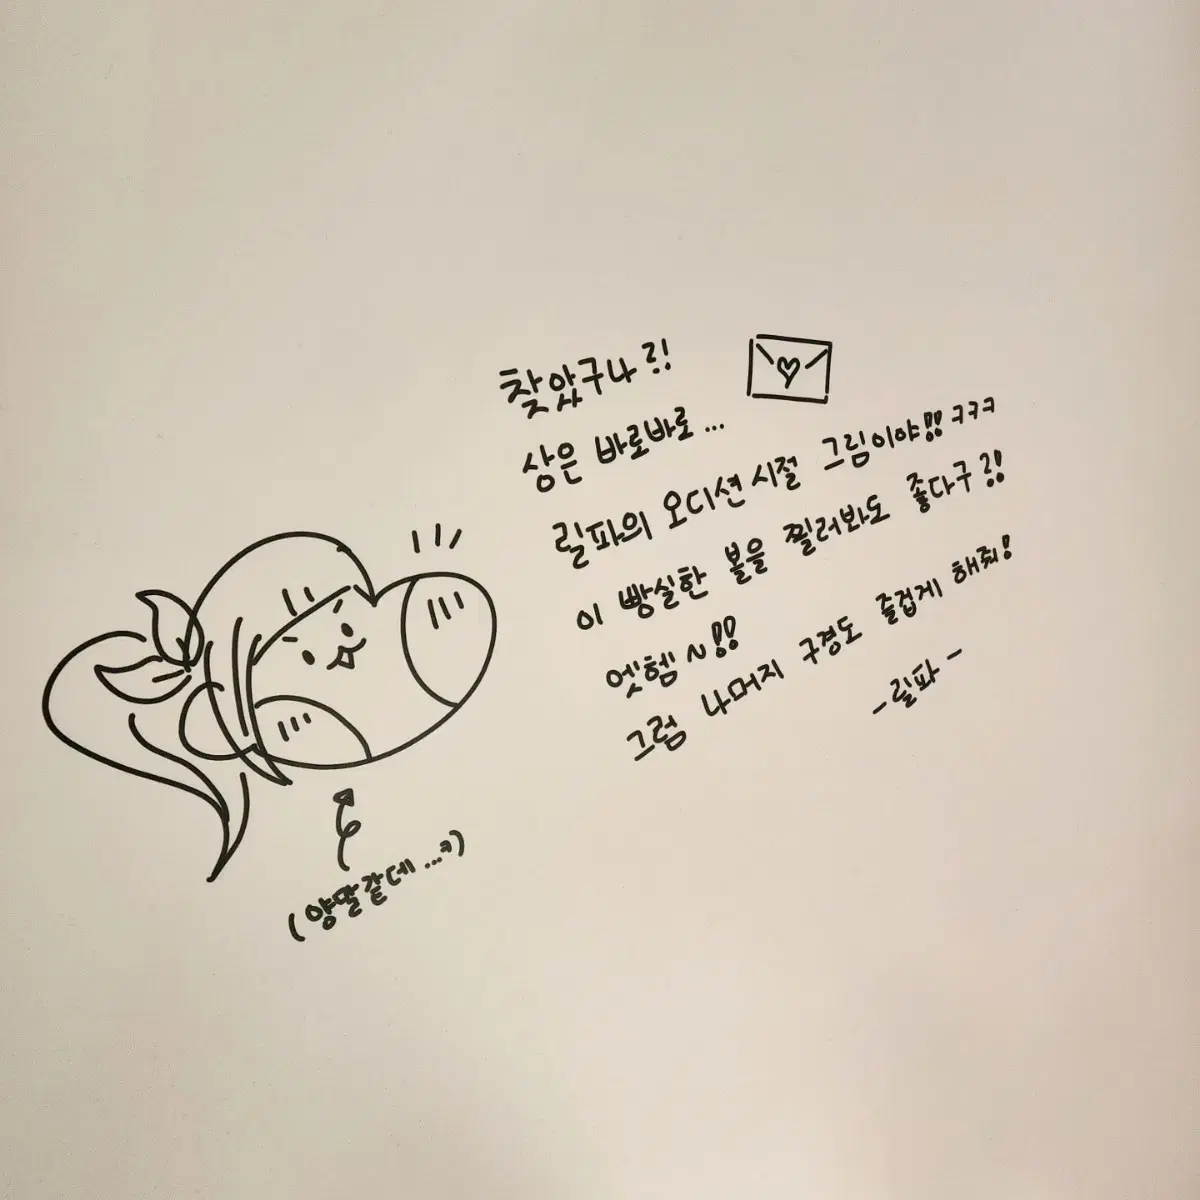 찾았구나?!
상은 바로바로...
릴파의 오디션 시절 그림이야!! ㅋㅋㅋ
이 빵실한 볼을 찔러봐도 좋다구?!
엣헴~!!
그럼 나머지 구경도 즐겁게 해줘!
-릴파-
(양말같데...ㅋ)